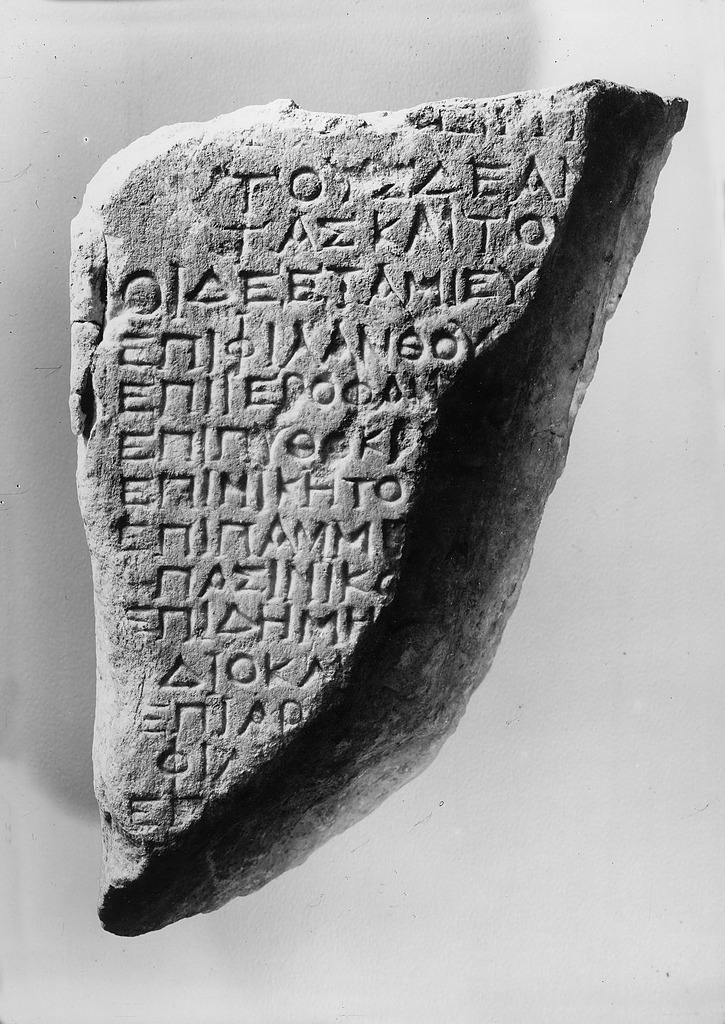 ΤΟΥΣΔΕΑΙ
ΤΑΣΚΑΙΤΟ
ΟΙΔΕΕΤΑΜΙΕΥ
ΕΠΙΦΙΛΑΝΘΟΥ
ΕΠΙΙΕΡΟΦΑΝ
ΕΠΙΠΥΘΟΚΡ
ΕΠΙΝΙΚΗΤΟ
ΕΠΙΠΑΜΜΕ
ΠΑΣΙΝΙΚΟ
ΕΠΙΔΗΜΗ
ΔΙΟΚΛ
ΕΠΙΑΡ
ΟΙΝ
ΕΠ